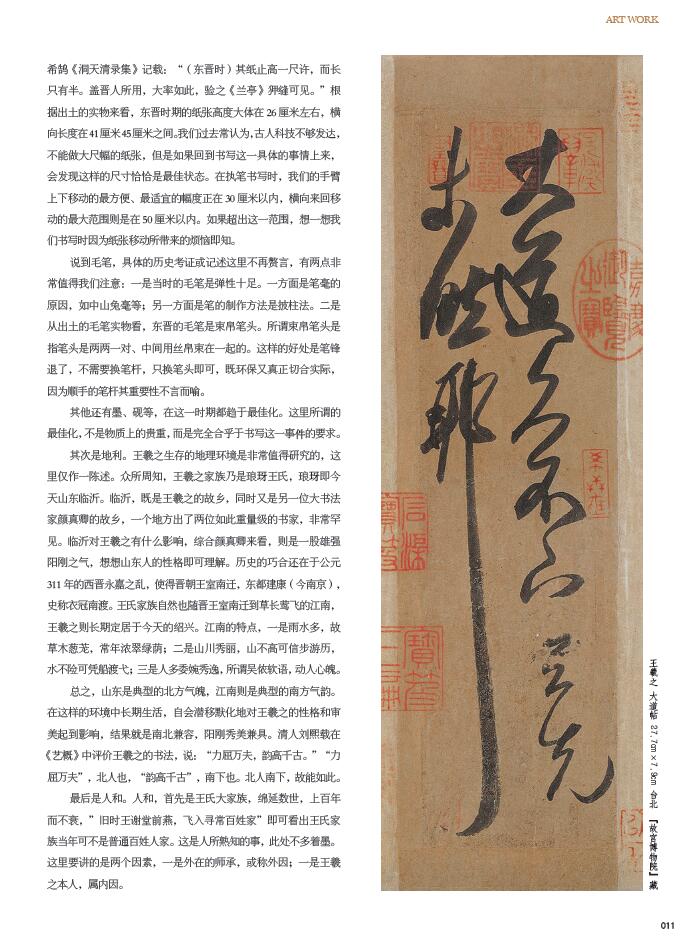 ART WORK
希鹄《洞天清录集》记载：“（东晋时）其纸止高一尺许，而长
只有半。盖晋人所用，大率如此，验之《兰亭》狎缝可见。”根
据出土的实物来看，东晋时期的纸张高度大体在 26 厘米左右，横
向长度在 41 厘米 45 厘米之间。我们过去常认为，古人科技不够发达，
不能做大尺幅的纸张，但是如果回到书写这一具体的事情上来，
会发现这样的尺寸恰恰是最佳状态。在执笔书写时，我们的手臂
上下移动的最方便、最适宜的幅度正在 30 厘米以内，横向来回移
动的最大范围则是在 50 厘米以内。如果超出这一范围，想一想我
们书写时因为纸张移动所带来的烦恼即知。
说到毛笔，具体的历史考证或记述这里不再赘言，有两点非
常值得我们注意：一是当时的毛笔是弹性十足。一方面是笔毫的
原因，如中山兔毫等；另一方面是笔的制作方法是披柱法。二是
从出土的毛笔实物看，东晋的毛笔是束帛笔头。所谓束帛笔头是
指笔头是两两一对、中间用丝帛束在一起的。这样的好处是笔锋
退了，不需要换笔杆，只换笔头即可，既环保又真正切合实际，
因为顺手的笔杆其重要性不言而喻。
其他还有墨、砚等，在这一时期都趋于最佳化。这里所谓的
最佳化，不是物质上的贵重，而是完全合乎于书写这一事件的要求。
其次是地利。王羲之生存的地理环境是非常值得研究的，这
里仅作一陈述。众所周知，王羲之家族乃是琅玡王氏，琅玡即今
天山东临沂。临沂，既是王羲之的故乡，同时又是另一位大书法
家颜真卿的故乡，一个地方出了两位如此重量级的书家，非常罕
见。临沂对王羲之有什么影响，综合颜真卿来看，则是一股雄强
阳刚之气，想想山东人的性格即可理解。历史的巧合还在于公元
311 年的西晋永嘉之乱，使得晋朝王室南迁，东都建康（今南京），
史称衣冠南渡。王氏家族自然也随晋王室南迁到草长莺飞的江南，
王羲之则长期居于今天的绍兴。江南的特点，一是雨水多，故
草木葱茏，常年浓翠绿荫；二是山川秀丽，山不高可信步游历，
水不险可凭船渡弋；三是人多委婉秀逸，所谓吴侬软语，动人心魄。
总之，山东是典型的北方气魄，江南则是典型的南方气韵。
在这样的环境中长期生活，自会潜移默化地对王羲之的性格和审
美起到影响，结果就是南北兼容，阳刚秀美兼具。清人刘熙载在
《艺概》中评价王羲之的书法，说：“力屈万夫，韵高千古。”“力
屈万夫”，北人也，“韵高千古”，南下也。北人南下，故能如此。
最后是人和。人和，首先是王氏大家族，绵延数世，上百年
而不衰，”旧时王谢堂前燕，飞入寻常百姓家”即可看出王氏家
族当年可不是普通百姓人家。这是人所熟知的事，此处不多着墨。
这里要讲的是两个因素，一是外在的师承，或称外因；一是王羲
之本人，属内因。
大道久不下与先
未然耶
王羲之 大道帖 27.7cm×7.9cm 台北 『故宫博物院』藏
011